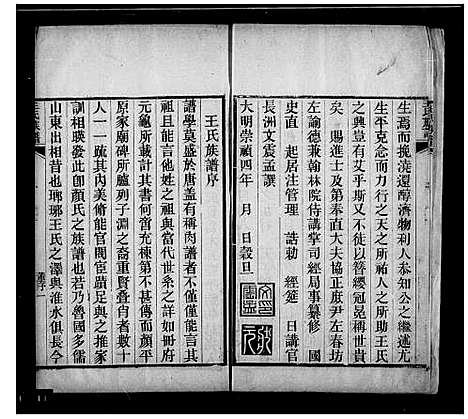 生焉而挽澆還醇濟物利人泰知公之繼述尤
生平克念而力行之天之所祐人之所助王氏
之興豈有艾乎斯又不徒以簪纓冠冕稱世貴
矣　賜進士及第奉直大夫協正庶尹左春坊
左諭德兼翰林院侍講掌司經局事纂修　國
史直　起居注管理　誥勅　經筵　日講官
長洲文震孟撰
大明崇禎四年　月　日穀旦
王氏族譜序
譜學莫盛於唐蓋有稱肉譜者不僅僅能言其
祖且能言他人之祖與當代世系之夥如冊府
元龜所載計其書何啻充棟第不甚傳而顏平
原家廟碑所臚列子淵之裔重賢疊肖者數十
人一一疏其內美術能官閥臣蹟足與之推家
訓相映發此卽顏氏之族譜也若乃魯國多儒
山東出相昔也瑯琊王氏之澤與淮水俱長今
王氏族譜